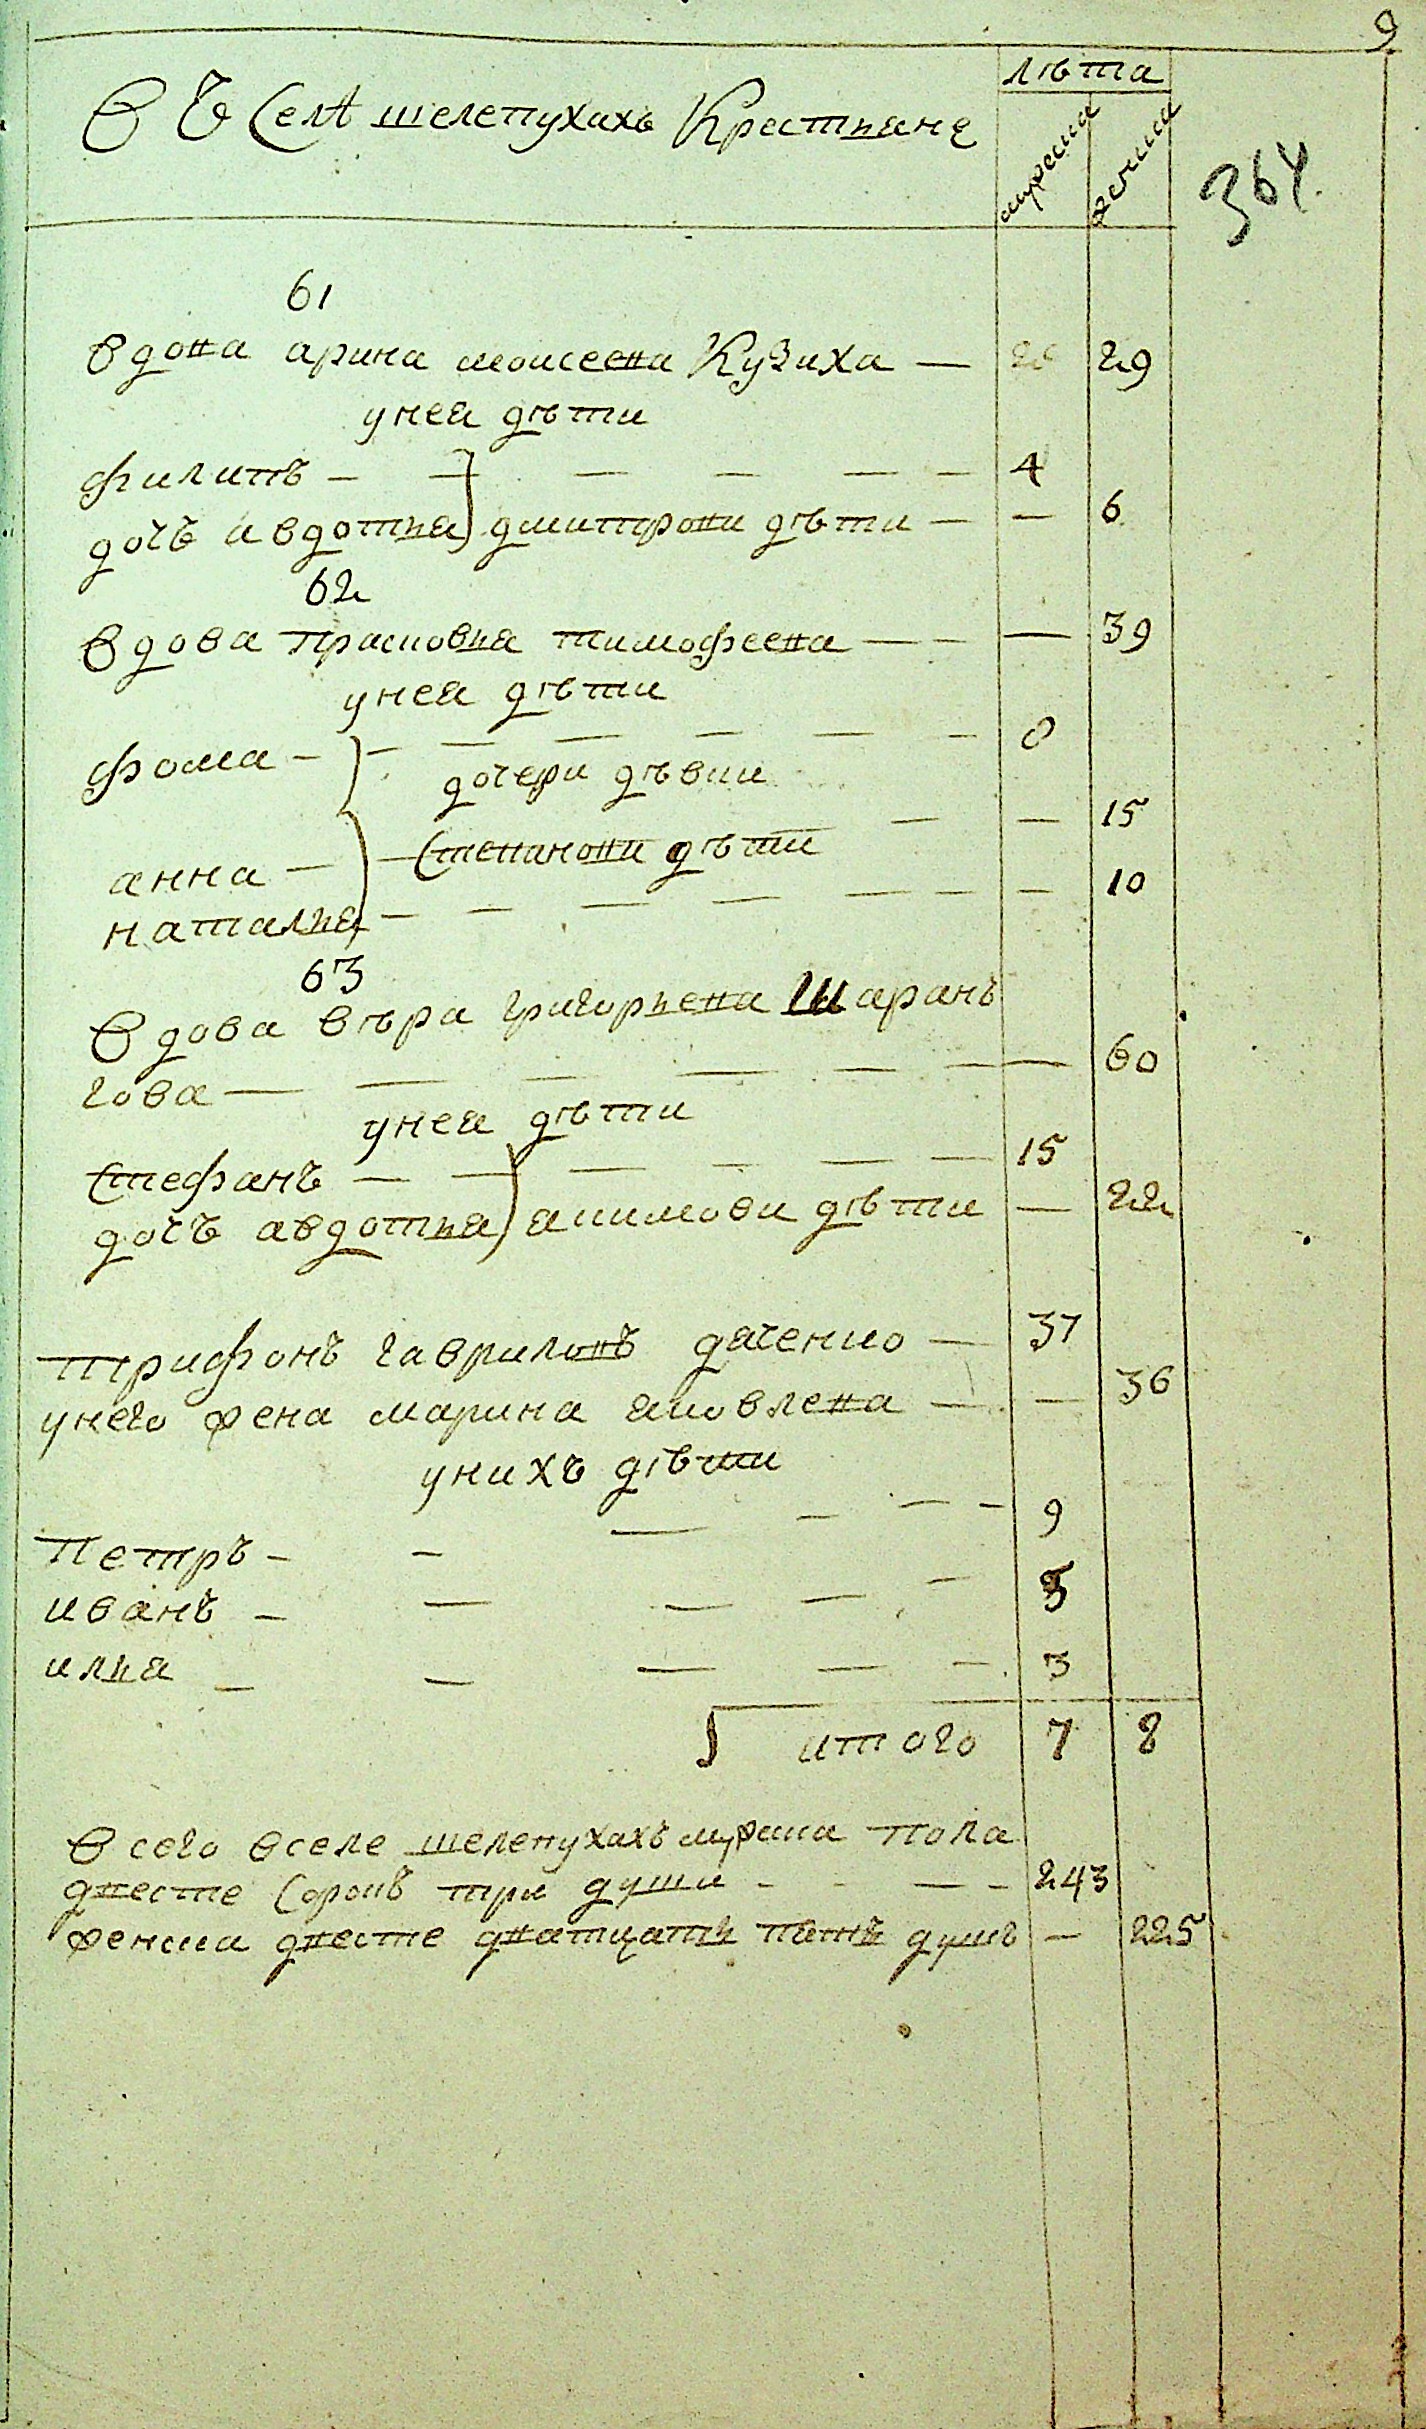 9
лѣта
Въ Селѣ шелепухахъ Крестьяне
мужеска
женска
364.
61
вдова арина моисеева Кузиха — 29
унея дѣти
филипъ — — — — — — 4
дочь авдотья дмитрови дѣти — — 6
62
вдова прасковья тимофеева — — — 39
унея дѣти
фома — — — — — — — 8
дочери дѣвки
анна — — Степанови дѣти — — 15
наталья — — — — — — — 10
63
вдова вѣра григорьева Шаранъ
гова — — — — — — — 60
унея дѣти
Стефанъ — — — — — — 15
дочь авдотья акимови дѣти — 22
трифонъ гавриловъ дяченко — 37
унего жена марина яковлева — — 36
унихъ дѣти
Петръ — — — — — — 9
иванъ — — — — — 5
илья — — — — — 3
итого 7 8
всего вселе шелепухахъ мужеска пола
двесте Сорокъ три души — — — 243
женска двесте дватцать пять душъ — 225